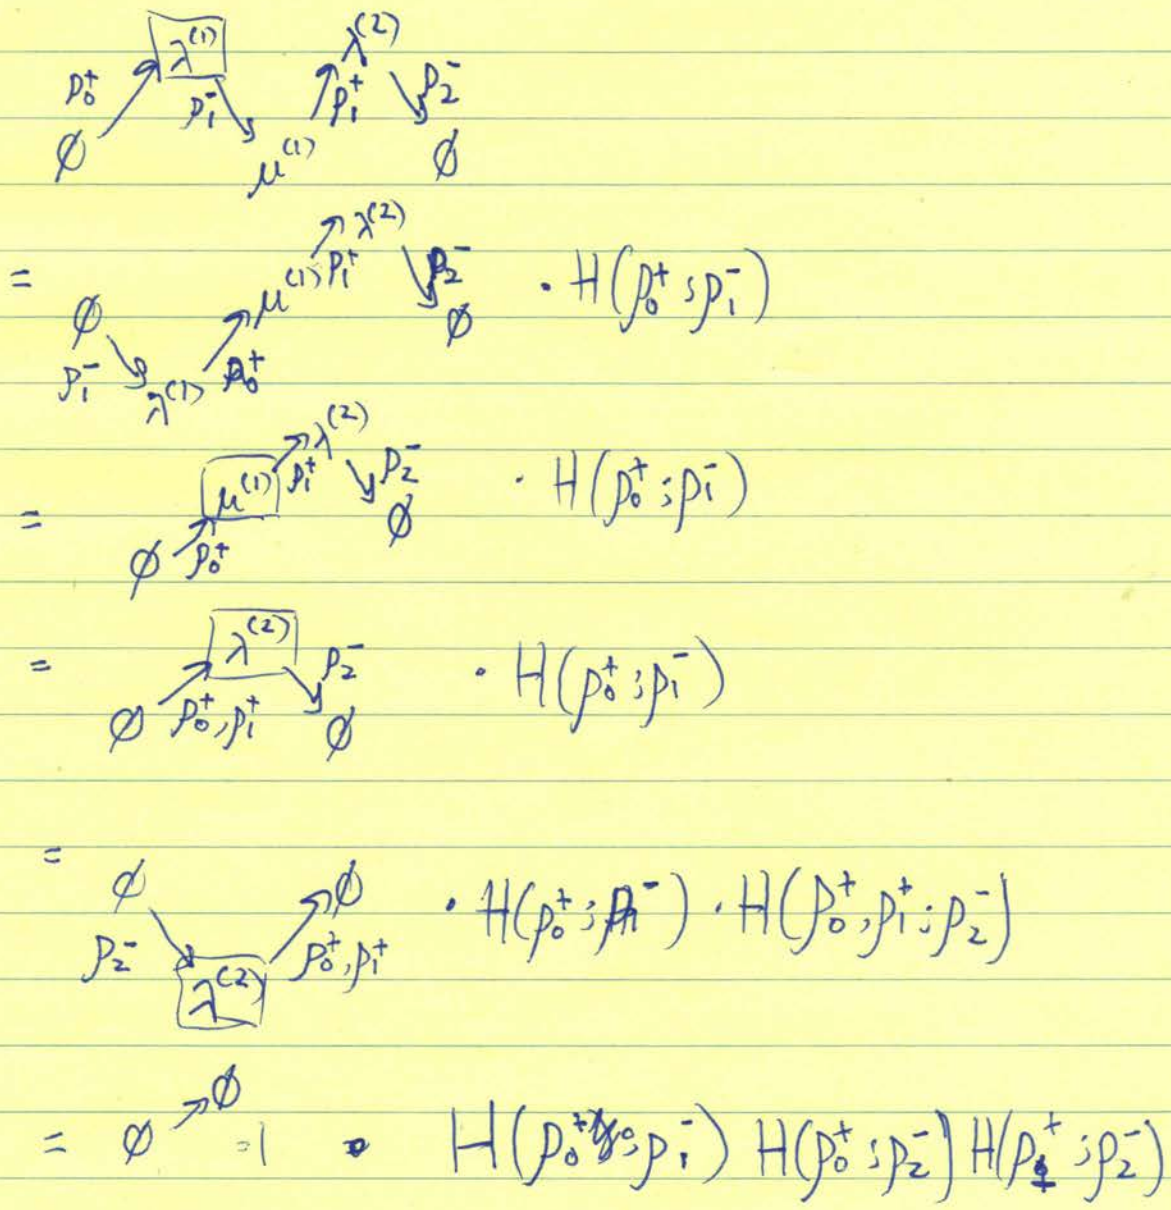 λ^(1) λ^(2)
ρ_0^+ ρ_1^- ρ_1^+ ρ_2^-
∅ μ^(1) ∅
= ∅ ρ_1^- λ^(1) ρ_0^+ μ^(1) ρ_1^+ λ^(2) ρ_2^- ∅ · H(ρ_0^+; ρ_1^-)
= ∅ ρ_0^+ μ^(1) ρ_1^+ λ^(2) ρ_2^- ∅ · H(ρ_0^+; ρ_1^-)
= ∅ ρ_0^+, ρ_1^+ λ^(2) ρ_2^- ∅ · H(ρ_0^+; ρ_1^-)
= ∅ ρ_2^- λ^(2) ρ_0^+, ρ_1^+ ∅ · H(ρ_0^+; ρ_1^-) · H(ρ_0^+, ρ_1^+; ρ_2^-)
= ∅ ↗ ∅ =1 · H(ρ_0^+; ρ_1^-) H(ρ_0^+; ρ_2^-) H(ρ_1^+; ρ_2^-)